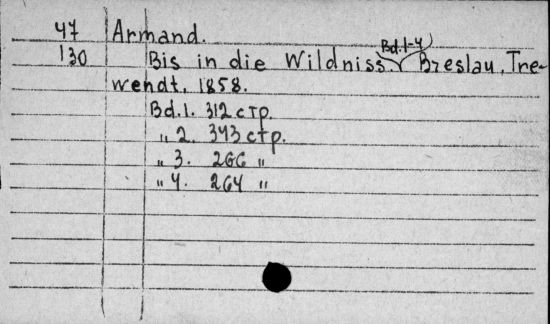 47 Armand.
130 Bis in die Wildniss. Bd. 1-4 Breslau, Tre-
wendt, 1858.
Bd. 1. 312 стр.
„ 2. 343 стр.
„ 3. 266 „
„ 4. 264 „